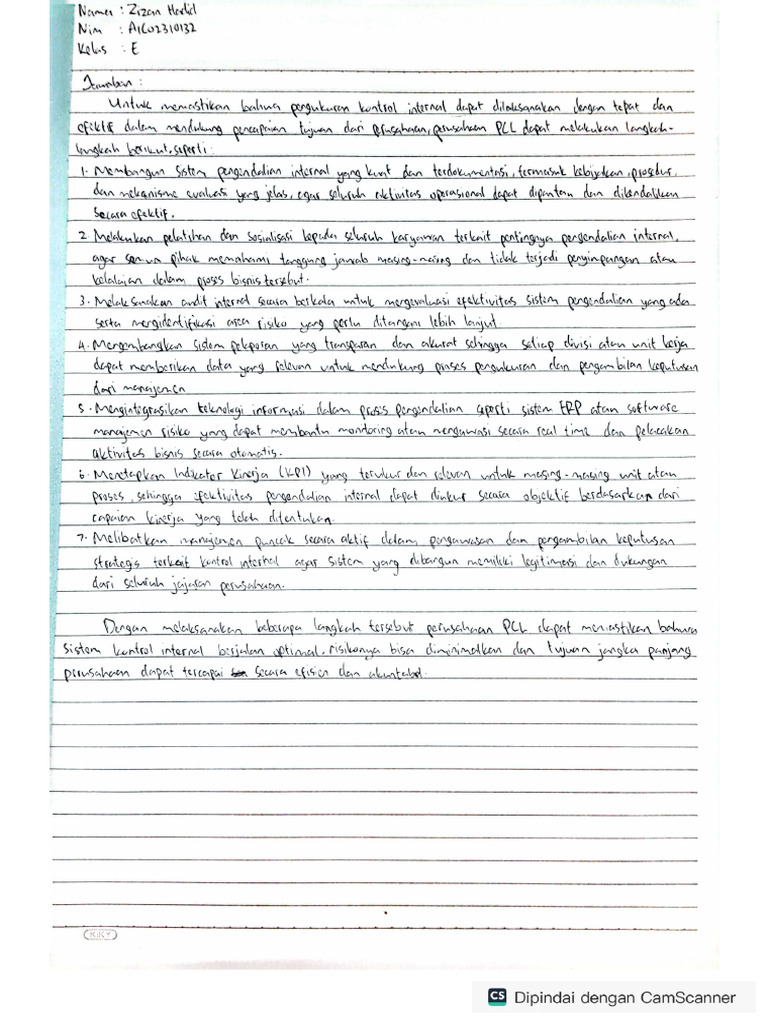 Nama : Zizan Hadid
Nim : A1C02310132
Kelas : E
Jawaban :
Untuk memastikan bahwa pengukuran kontrol internal dapat dilaksanakan dengan tepat dan
efektif dalam mendukung pencapaian tujuan dari perusahaan, perusahaan PCL dapat melakukan langkah-
langkah berikut, seperti :
1. Membangun sistem pengendalian internal yang kuat dan terdokumentasi, termasuk kebijakan, prosedur,
dan mekanisme evaluasi yang jelas, agar seluruh aktivitas operasional dapat dipantau dan dikendalikan
secara efektif.
2. Melakukan pelatihan dan sosialisasi kepada seluruh karyawan terkait pentingnya pengendalian internal,
agar semua pihak memahami tanggung jawab masing-masing dan tidak terjadi penyimpangan atau
kelalaian dalam proses bisnis tersebut.
3. Melaksanakan audit internal secara berkala untuk mengevaluasi efektivitas sistem pengendalian yang ada
serta mengidentifikasi area risiko yang perlu ditangani lebih lanjut.
4. Mengembangkan sistem pelaporan yang transparan dan akurat sehingga setiap divisi atau unit kerja
dapat memberikan data yang relevan untuk mendukung proses pengukuran dan pengambilan keputusan
dari manajemen
5. Mengintegrasikan teknologi informasi dalam proses pengendalian seperti sistem ERP atau software
manajemen risiko yang dapat membantu monitoring atau mengawasi secara real time dan pelacakan
aktivitas bisnis secara otomatis.
6. Menetapkan Indikator Kinerja (KPI) yang terukur dan relevan untuk masing-masing unit atau
proses, sehingga efektivitas pengendalian internal dapat diukur secara objektif berdasarkan dari
capaian kinerja yang telah ditentukan.
7. Melibatkan manajemen puncak secara aktif dalam pengawasan dan pengambilan keputusan
strategis terkait kontrol internal agar sistem yang dibangun memiliki legitimasi dan dukungan
dari seluruh jajaran perusahaan.
Dengan melaksanakan beberapa langkah tersebut perusahaan PCL dapat memastikan bahwa
sistem kontrol internal berjalan optimal, risikonya bisa diminimalkan dan tujuan jangka panjang
perusahaan dapat tercapai secara efisien dan akuntabel.
KIKY
CS Dipindai dengan CamScanner